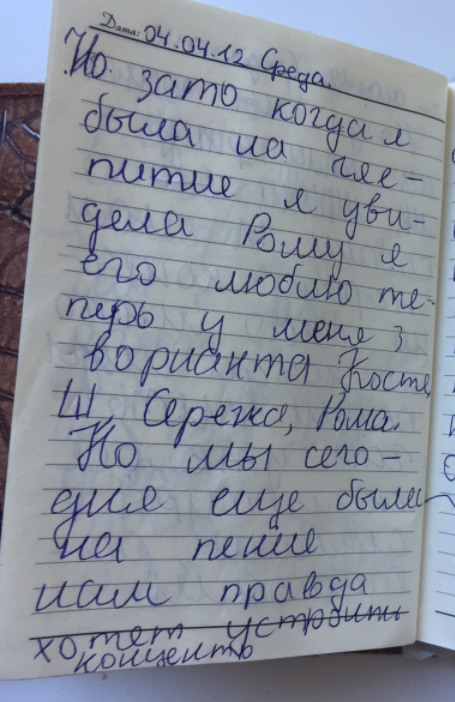 Дата: 04.04.12 Среда.
Но зато когда я
была на чяе-
питие я уви-
дела Рому я
его люблю те-
перь у меня 3
ворианта Костя
Ш, Сережа, Рома.
Но мы сего-
дня еще были
на пение
нам правда
хотет устроить
концентр